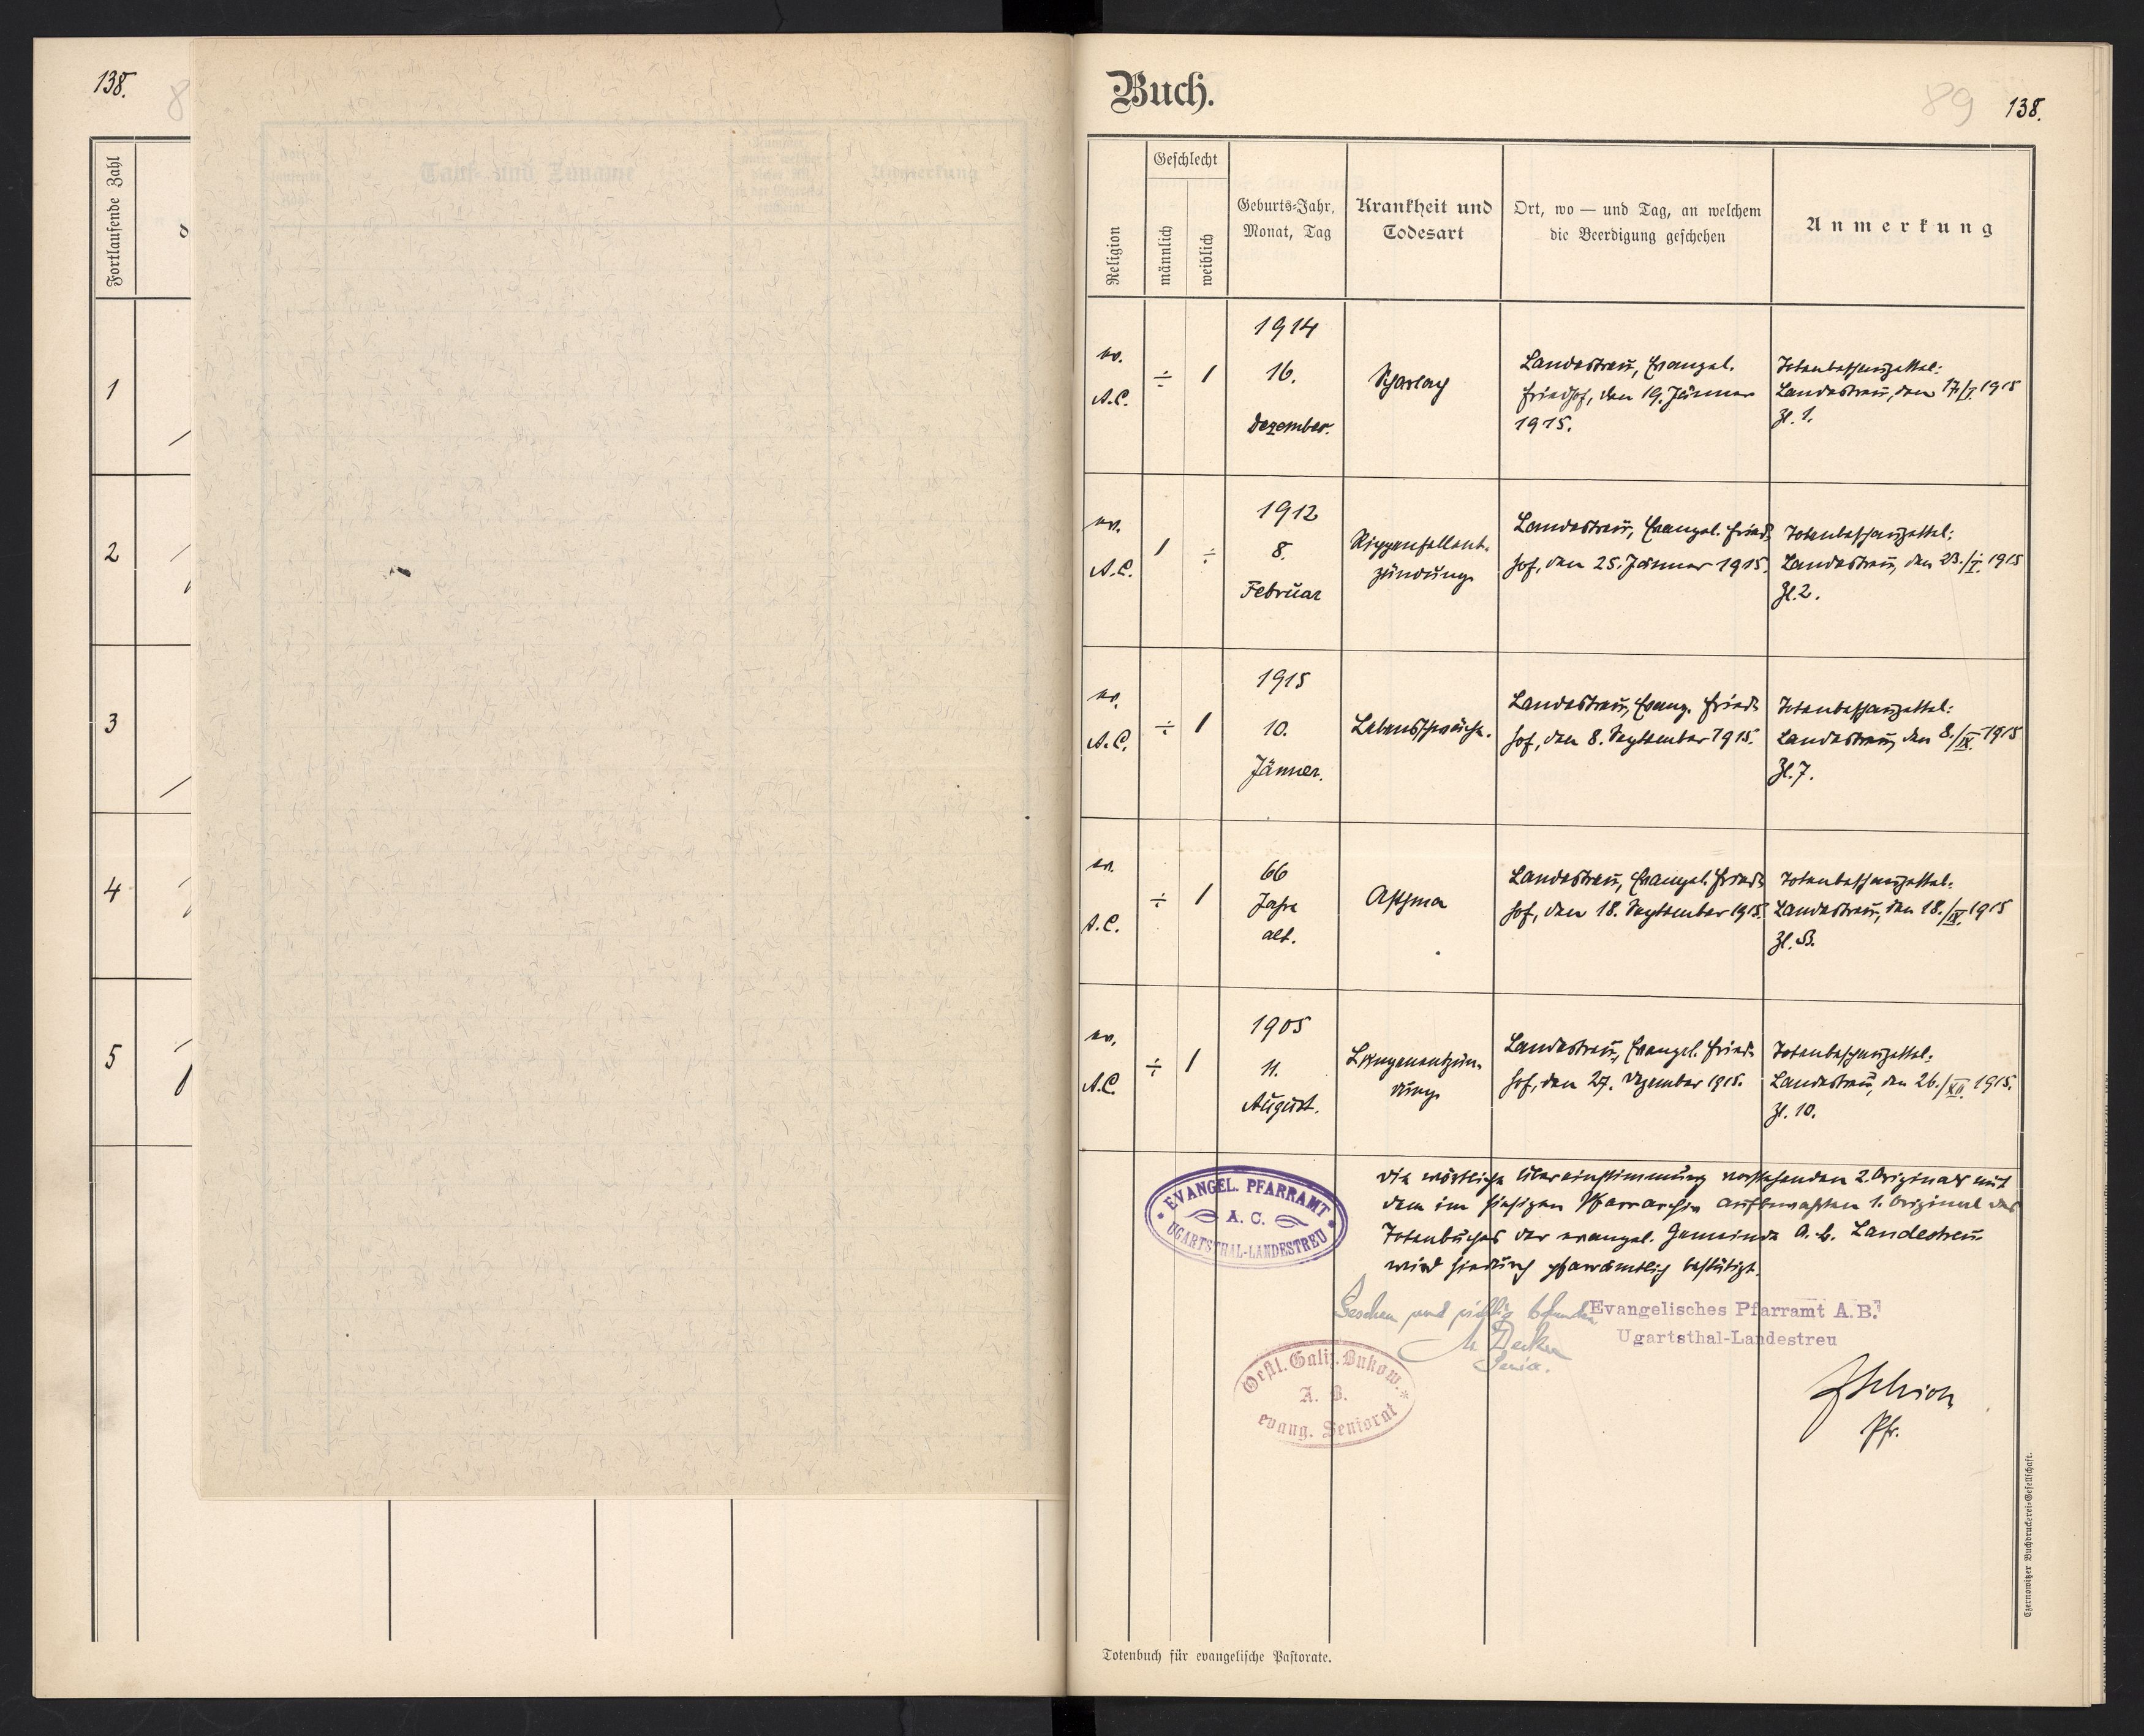 138.
8
Fortlaufende Zahl
1
2
3
4
5
Tauf- und Zuname
Anmerkung
Buch.
89
138.
Religion
Geschlecht
männlich
weiblich
Geburts-Jahr,
Monat, Tag
Krankheit und
Todesart
Ort, wo — und Tag, an welchem
die Beerdigung geschehen
Anmerkung
ev.
A.C.
÷
1
1914
16.
Dezember.
Scharlach
Landestreu, Evangel.
Friedhof, den 19. Jänner
1915.
Totenbeschauzettel:
Landestreu, den 17./I. 1915
Zl. 1.
ev.
A.C.
1
÷
1912
8.
Februar
Rippenfellent-
zündung
Landestreu, Evangel. Fried-
hof, den 25. Jänner 1915.
Totenbeschauzettel:
Landestreu, den 23./I. 1915
Zl. 2.
ev.
A.C.
÷
1
1915
10.
Jänner.
Lebensschwäche.
Landestreu, Evang. Fried-
hof, den 8. September 1915.
Totenbeschauzettel:
Landestreu, den 8./IX. 1915
Zl. 7.
ev.
A.C.
÷
1
66
Jahre
alt.
Asthma
Landestreu, Evangel. Fried-
hof, den 18. September 1915.
Totenbeschauzettel:
Landestreu, den 18./IX. 1915
Zl. 8.
ev.
A.C.
÷
1
1905
11.
August.
Lungenentzün-
dung
Landestreu, Evangel. Fried-
hof, den 27. Dezember 1915.
Totenbeschauzettel:
Landestreu, den 26./XII. 1915.
Zl. 10.
Die wörtliche Übereinstimmung vorstehenden 2. Originals mit
dem im hiesigen Pfarrarchiv aufbewahrten 1. Original des
Totenbuches der evangel. Gemeinde A. B. Landestreu
wird hiedurch pfarrämtlich bestätigt.
EVANGEL. PFARRAMT
A. C.
UGARTSTHAL-LANDESTREU
Gesehen und richtig befunden
Senior.
Evangelisches Pfarramt A.B.
Ugartsthal-Landestreu
Oestl. Galiz. Bukow.
A. B.
evang. Seniorat
Pfr.
Czernowitzer Buchdruckerei-Gesellschaft.
Totenbuch für evangelische Pastorate.